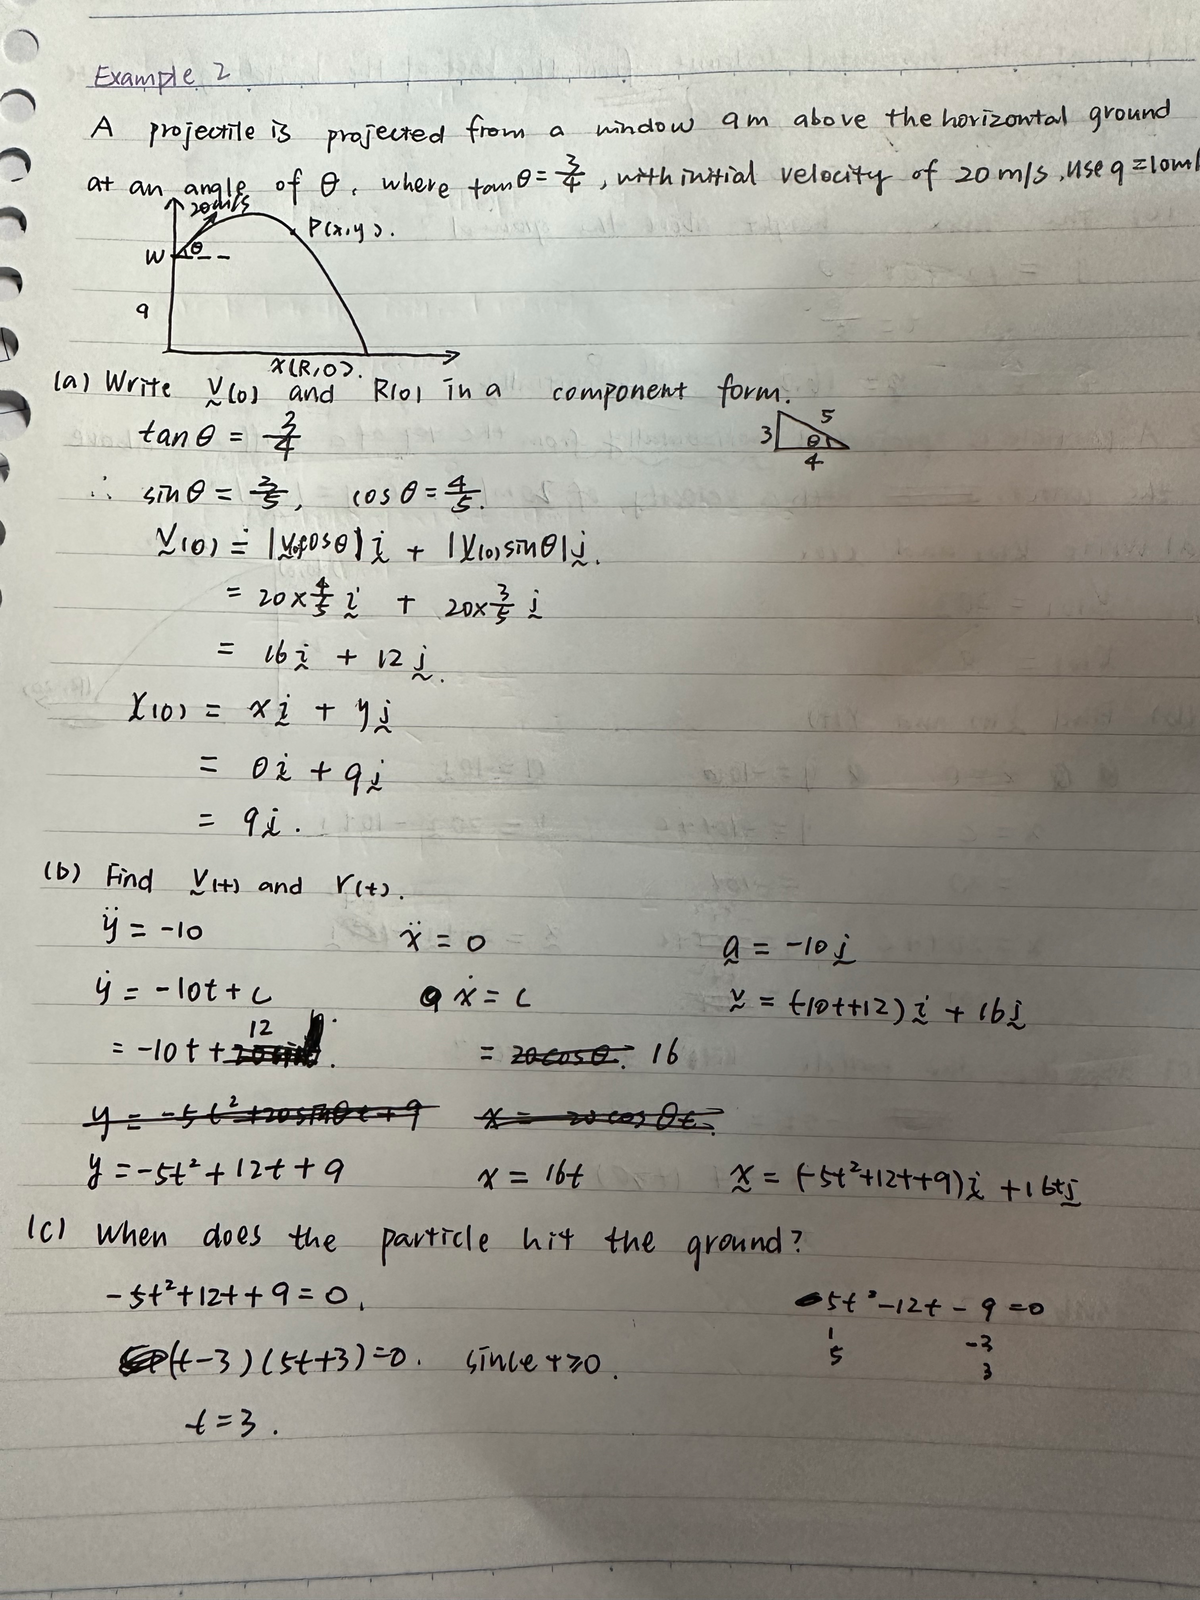 Example 2
A projectile is projected from a window 9m above the horizontal ground
at an angle of θ, where tanθ = 3/4, with initial velocity of 20 m/s, use g=10m/
20m/s
P(x,y).
W
θ
9
X(R,0).
(a) Write v(0) and R(0) in a component form.
tanθ = 3/4
3 5 θ 4
∴ sinθ = 3/5, cosθ = 4/5.
v(0) = |v(0)cosθ| i + |v(0)sinθ| j.
= 20×4/5 i + 20×3/5 j
= 16 i + 12 j.
r(0) = x i + y j
= 0 i + 9 j
= 9 j.
(b) Find v(t) and r(t).
ÿ = -10 ẍ = 0 a = -10 j
ẏ = -10t + c ẋ = c v = (-10t+12) i + 16 j
= -10t + 12 = 20cosθ. 16
y = -5t² + 20sinθt + 9 x = 20cosθt.
y = -5t² + 12t + 9 x = 16t r = (-5t²+12t+9) i + 16t j
(c) When does the particle hit the ground?
-5t²+12t+9=0, 5t²-12t-9=0
(t-3)(5t+3)=0. since t≥0. 1 -3
5 3
t=3.